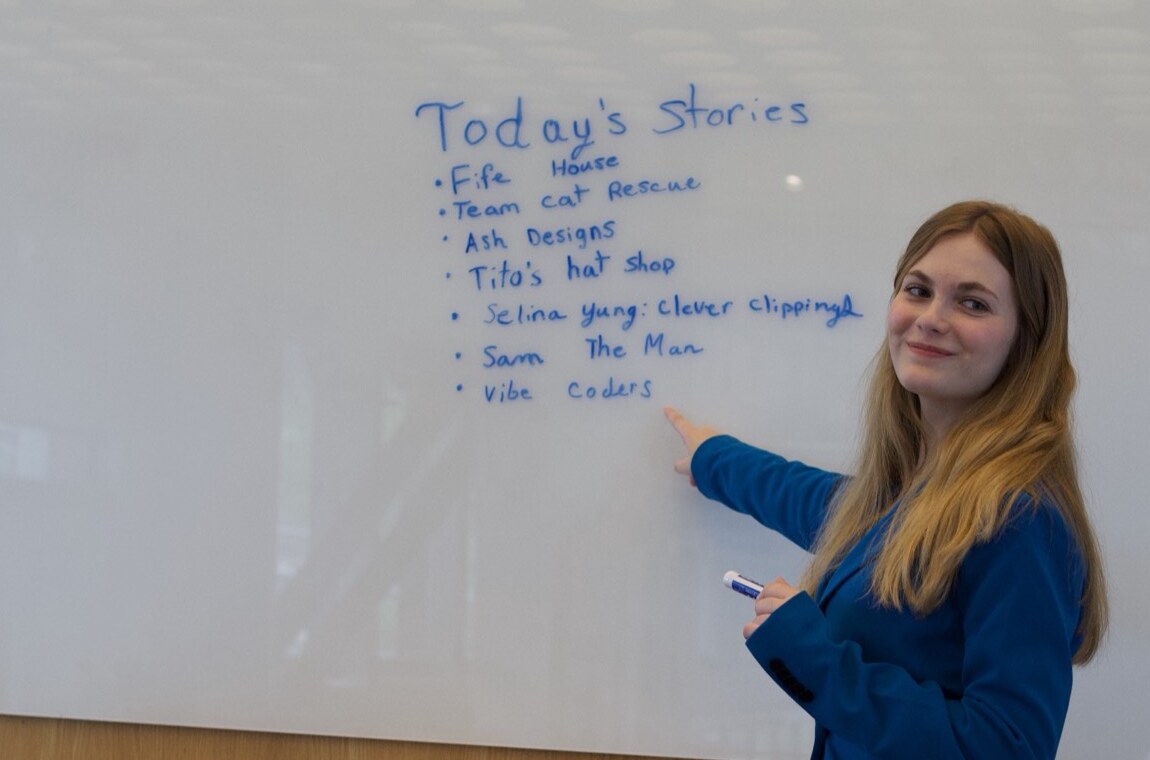 Today's Stories
• Fife House
• Team Cat Rescue
• Ash Designs
• Tito's hat Shop
• Selina Yung: Clever Clippings
• Sam The Man
• Vibe Coders